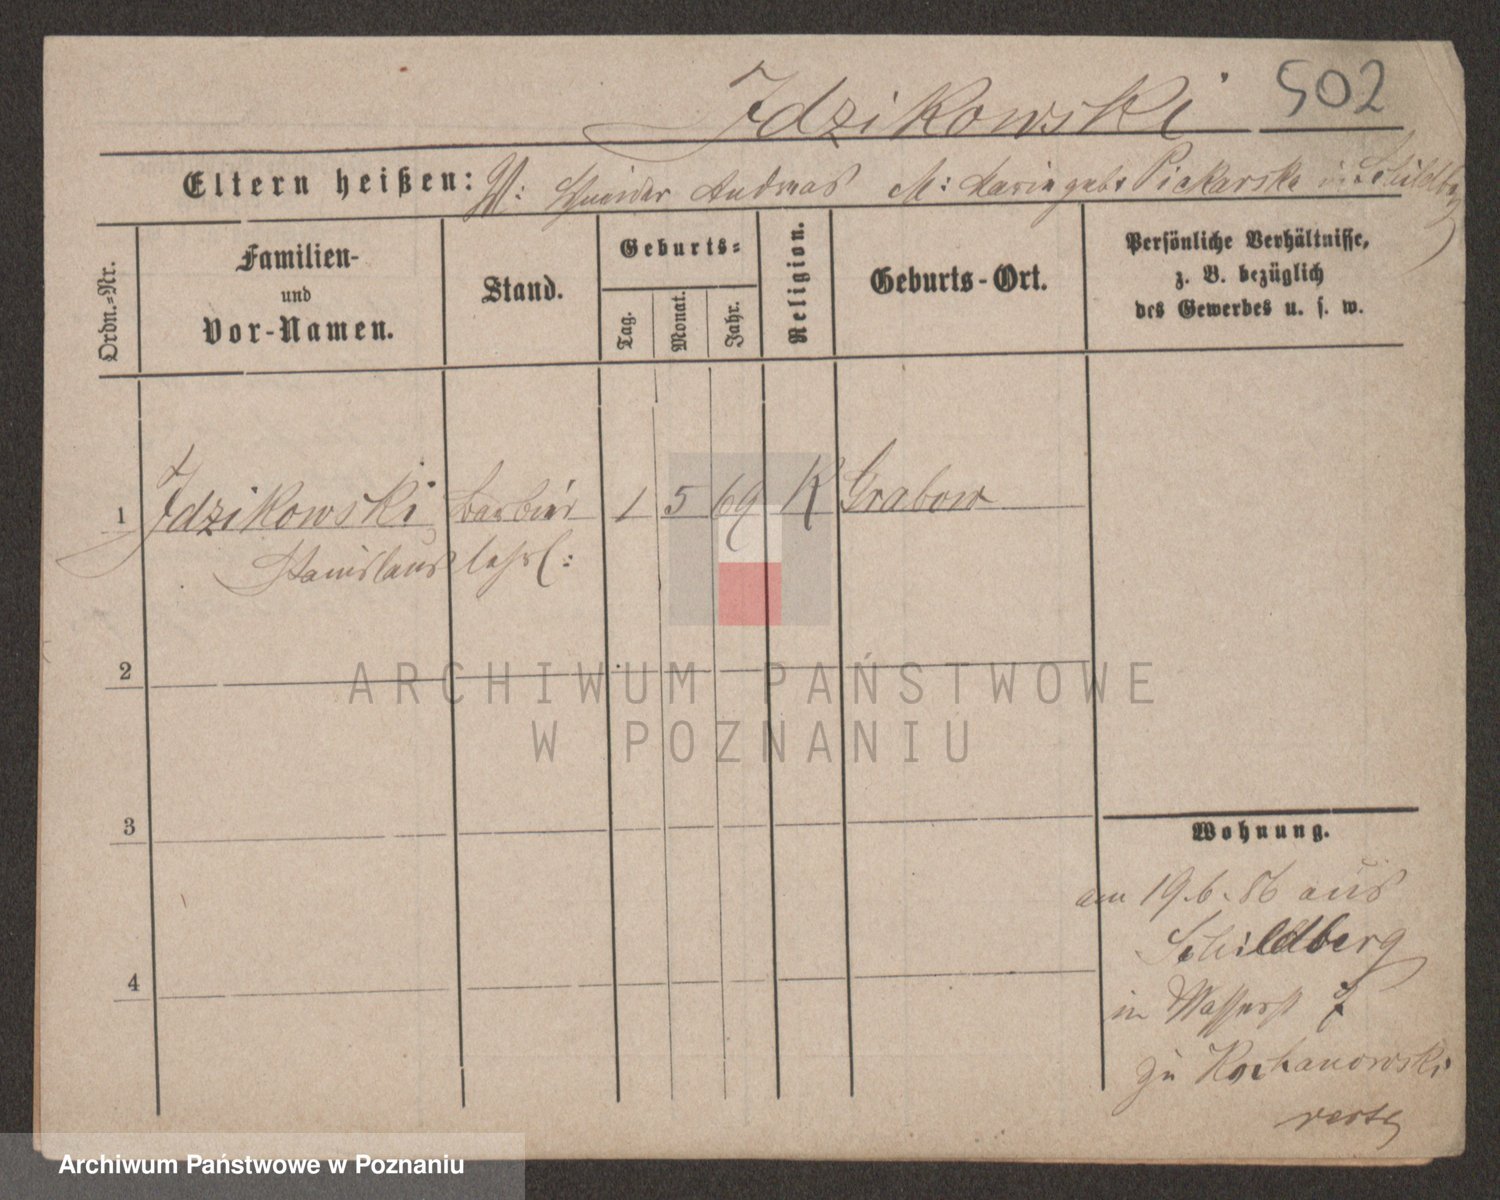 Idzikowski 502
Eltern heißen: V: Schneider Andreas M: Marie geb. Piekarska in Schildberg
Ordn.-Nr.
Familien-
und
Vor-Namen.
Stand.
Geburts-
Tag.
Monat.
Jahr.
Religion.
Geburts-Ort.
Persönliche Verhältnisse,
z. B. bezüglich
des Gewerbes u. s. w.
1 Idzikowski Barbier 1 5 69 K Grabow
Stanislaus lehrl:
2
3
4
Wohnung.
am 19.6.86 aus
Schildberg
in Wasserst 7
zu Kochanowski
verte
ARCHIWUM PAŃSTWOWE
W POZNANIU
Archiwum Państwowe w Poznaniu